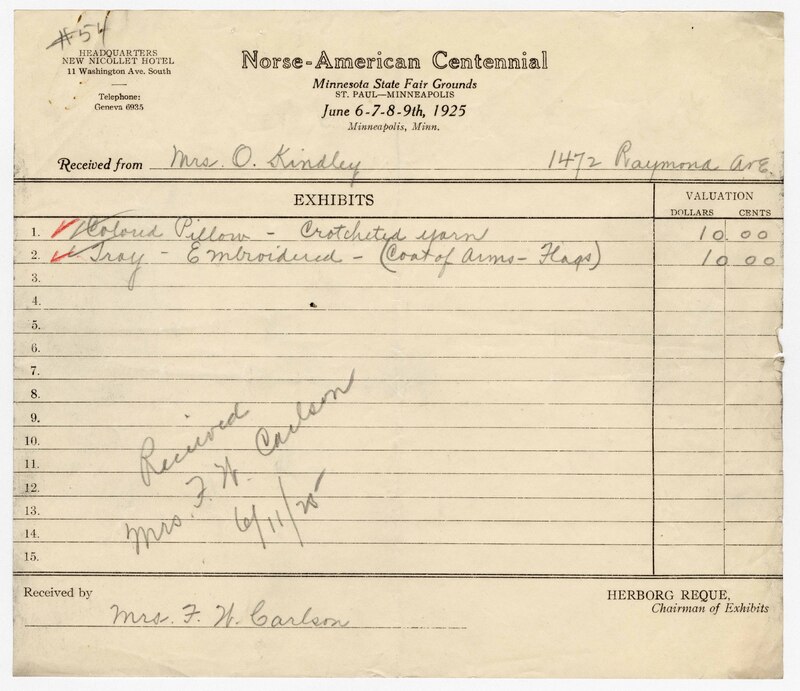 #54
HEADQUARTERS
NEW NICOLLET HOTEL
11 Washington Ave. South
Telephone:
Geneva 6935
Norse-American Centennial
Minnesota State Fair Grounds
ST. PAUL—MINNEAPOLIS
June 6-7-8-9th, 1925
Minneapolis, Minn.
Received from Mrs. O. Kindley 1472 Raymond Ave.
EXHIBITS VALUATION
DOLLARS CENTS
1. Colored Pillow - Crotcheted yarn 10 00
2. Tray - Embroidered - (Coat of Arms - Flags) 10 00
3.
4.
5.
6.
7.
8.
9.
10.
11.
12.
13.
14.
15.
Received
Mrs. F. W. Carlson
6/11/25
Received by
Mrs. F. W. Carlson
HERBORG REQUE,
Chairman of Exhibits